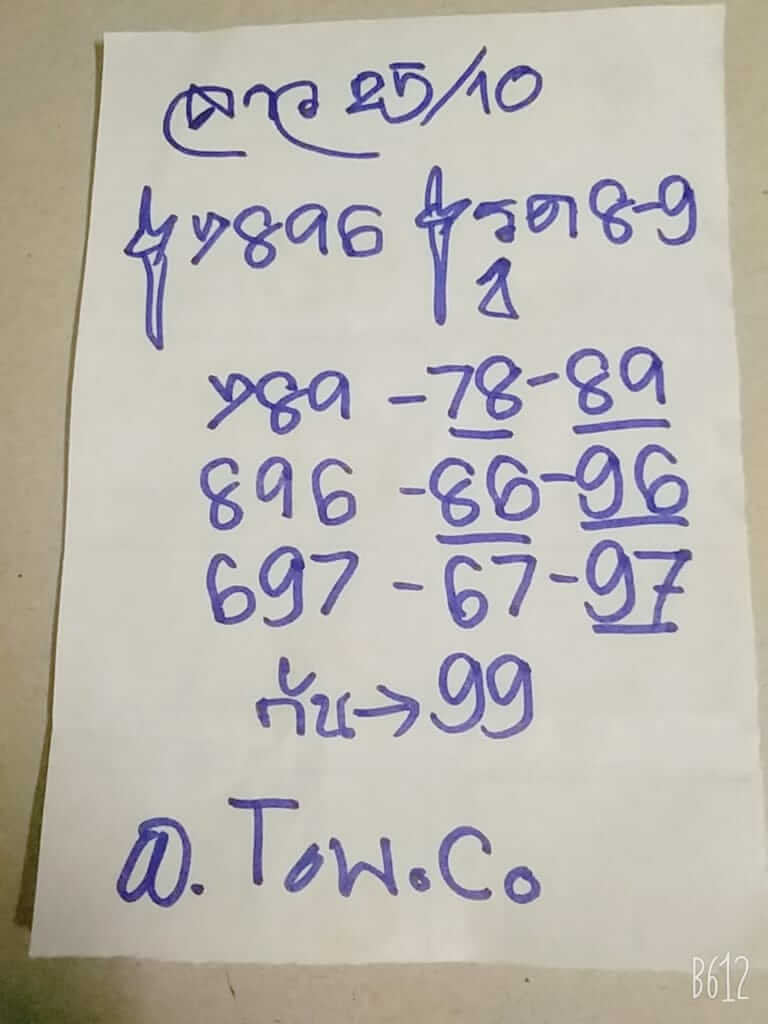 ลาว 25/10
7896 รูด 8-9
789 - 78 - 89
896 - 86 - 96
697 - 67 - 97
กัน → 99
อ. Tow.Co
B612